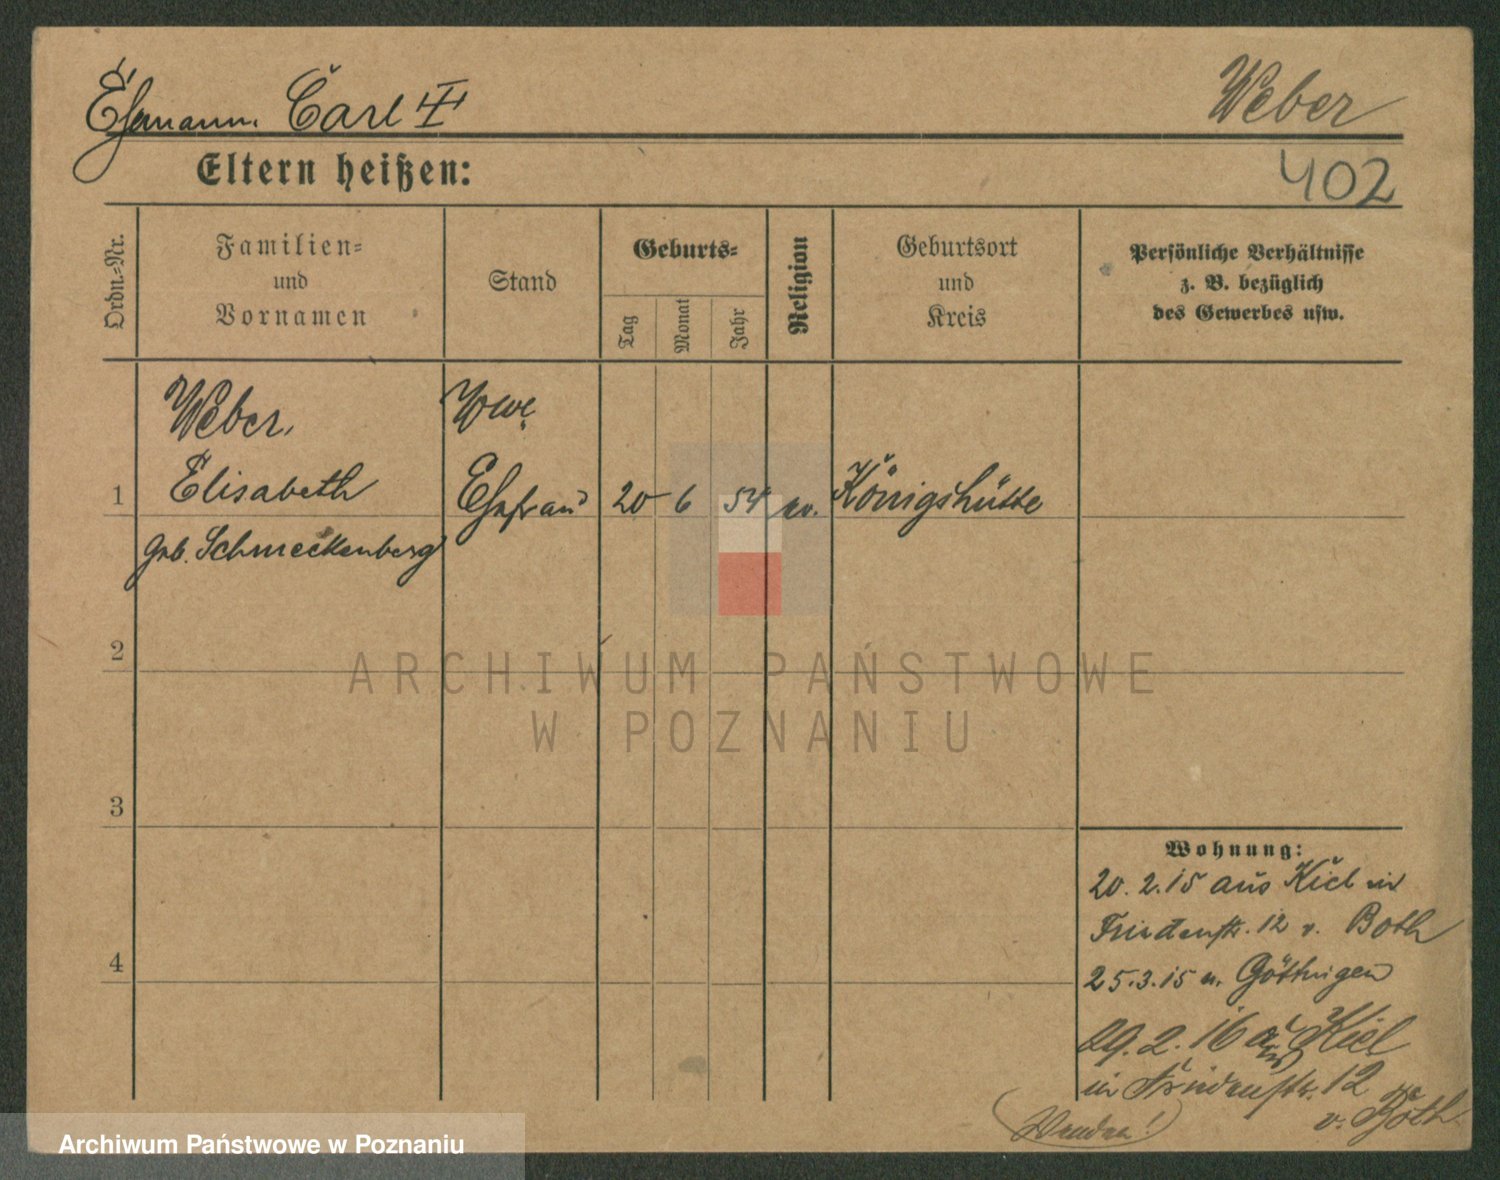 Ehemann. Carl
Weber
Eltern heißen:
402
Ordn.-Nr.
Familien-
und
Vornamen
Stand
Geburts-
Tag
Monat
Jahr
Religion
Geburtsort
und
Kreis
Persönliche Verhältnisse
z. B. bezüglich
des Gewerbes usw.
Weber, Wwe
1 Elisabeth Ehefrau 20 6 54 ev. Königshütte
geb. Schmeckenberg
2
3
4
Wohnung:
20.2.15 aus Kiel in
Friedenstr. 12 v. Both
25.3.15 n. Göttingen
29.2.16 aus Kiel
in Friedenstr. 12
v. Both
(Wenden!)
ARCHIWUM PAŃSTWOWE
W POZNANIU
Archiwum Państwowe w Poznaniu